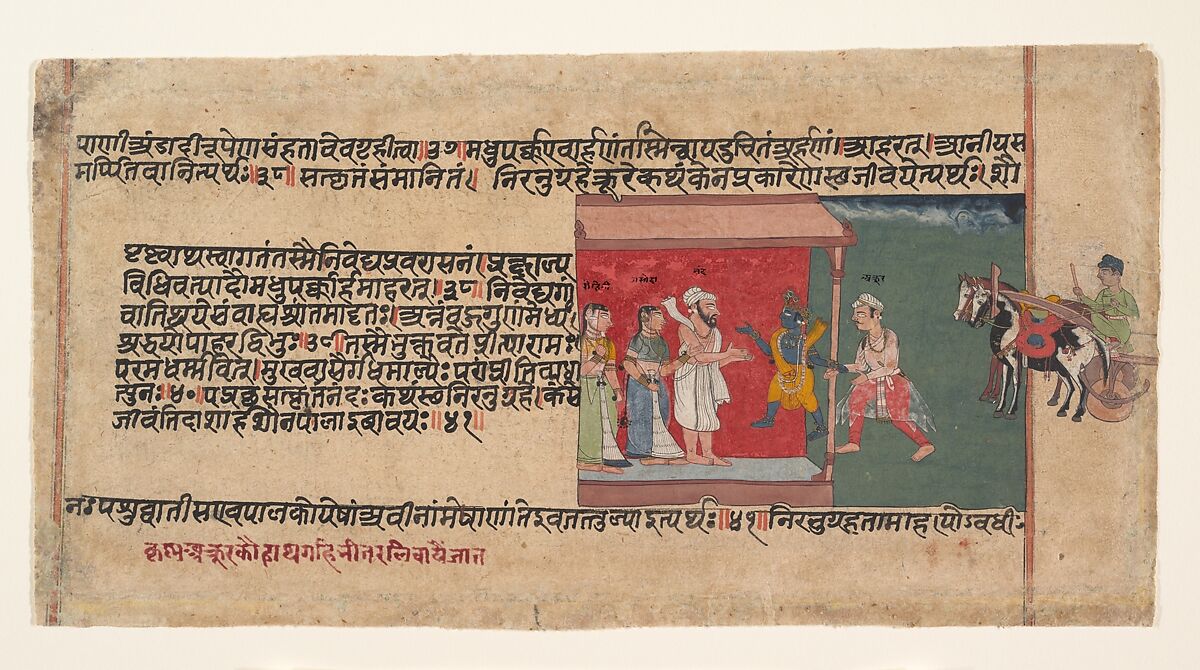 पाणी अंजलीरूपेण संहतावेव गृहीत्वा॥३७॥मधुपर्क एवार्हणं तस्मिन्वा उचितं अर्हणं।आहरत्।आनीय स
मर्पितवानित्यर्थः॥३८॥ सत्कृतं संमानितं। निरनुग्रहे क्रूरे कथं केन प्रकारेण स्थ जीवथेत्यर्थः। शौ
पृष्ट्वाथ स्वागतं तस्मै निवेद्य प्रवरासनं।प्रक्षाल्य
विधिवत्पादौ मधुपर्कार्हमाहरत्।३८॥निवेद्य गां
चातिथये संवाह्य श्रांतमादृतः।अन्नं बहुगुणं मेध्यं
श्रद्धयोपाहरद्विभुः॥३९॥तस्मै भुक्तवते प्रीत्या रामः
परमधर्मवित्।मुखवासैर्गंधमाल्यैः परां प्रीतिं व्यधा
त्पुनः॥४०॥पप्रछ सत्कृतं नंदः कथं स्थ निरनुग्रहे।कंसे
जीवति दाशार्ह शौनपाला इवावयः॥४१॥
रोहिणी
जसोदा
नंद
अक्रूर
नः पशुघाती स एव पालको येषां अवीनां मेषाणां ते इव तत्तुल्या इत्यर्थः॥४१॥निरनुग्रहतामाह।योऽवधी
कृष्ण अक्रूर कौ हाथ गहि भीतर लिवायै जात